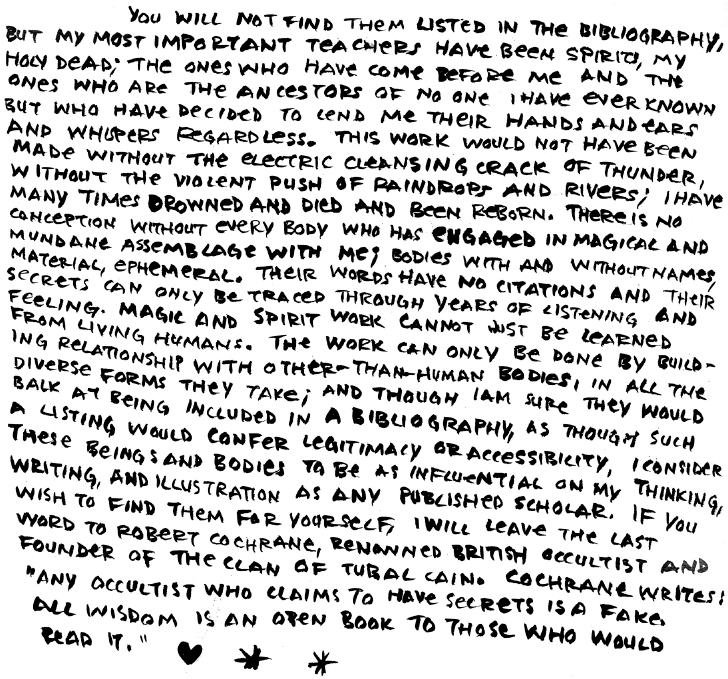 YOU WILL NOT FIND THEM LISTED IN THE BIBLIOGRAPHY,
BUT MY MOST IMPORTANT TEACHERS HAVE BEEN SPIRITS, MY
HOLY DEAD; THE ONES WHO HAVE COME BEFORE ME AND THE
ONES WHO ARE THE ANCESTORS OF NO ONE I HAVE EVER KNOWN
BUT WHO HAVE DECIDED TO LEND ME THEIR HANDS AND EARS
AND WHISPERS REGARDLESS. THIS WORK WOULD NOT HAVE BEEN
MADE WITHOUT THE ELECTRIC CLEANSING CRACK OF THUNDER,
WITHOUT THE VIOLENT PUSH OF RAINDROPS AND RIVERS; I HAVE
MANY TIMES DROWNED AND DIED AND BEEN REBORN. THERE IS NO
CONCEPTION WITHOUT EVERY BODY WHO HAS ENGAGED IN MAGICAL AND
MUNDANE ASSEMBLAGE WITH ME; BODIES WITH AND WITHOUT NAMES,
MATERIAL, EPHEMERAL. THEIR WORDS HAVE NO CITATIONS AND THEIR
SECRETS CAN ONLY BE TRACED THROUGH YEARS OF LISTENING AND
FEELING. MAGIC AND SPIRIT WORK CANNOT JUST BE LEARNED
FROM LIVING HUMANS. THE WORK CAN ONLY BE DONE BY BUILD-
ING RELATIONSHIP WITH OTHER-THAN-HUMAN BODIES, IN ALL THE
DIVERSE FORMS THEY TAKE; AND THOUGH I AM SURE THEY WOULD
BALK AT BEING INCLUDED IN A BIBLIOGRAPHY, AS THOUGH SUCH
A LISTING WOULD CONFER LEGITIMACY OR ACCESSIBILITY, I CONSIDER
THESE BEINGS AND BODIES TO BE AS INFLUENTIAL ON MY THINKING,
WRITING, AND ILLUSTRATION AS ANY PUBLISHED SCHOLAR. IF YOU
WISH TO FIND THEM FOR YOURSELF, I WILL LEAVE THE LAST
WORD TO ROBERT COCHRANE, RENOWNED BRITISH OCCULTIST AND
FOUNDER OF THE CLAN OF TUBAL CAIN. COCHRANE WRITES:
"ANY OCCULTIST WHO CLAIMS TO HAVE SECRETS IS A FAKE.
ALL WISDOM IS AN OPEN BOOK TO THOSE WHO WOULD
READ IT." ♥ * *